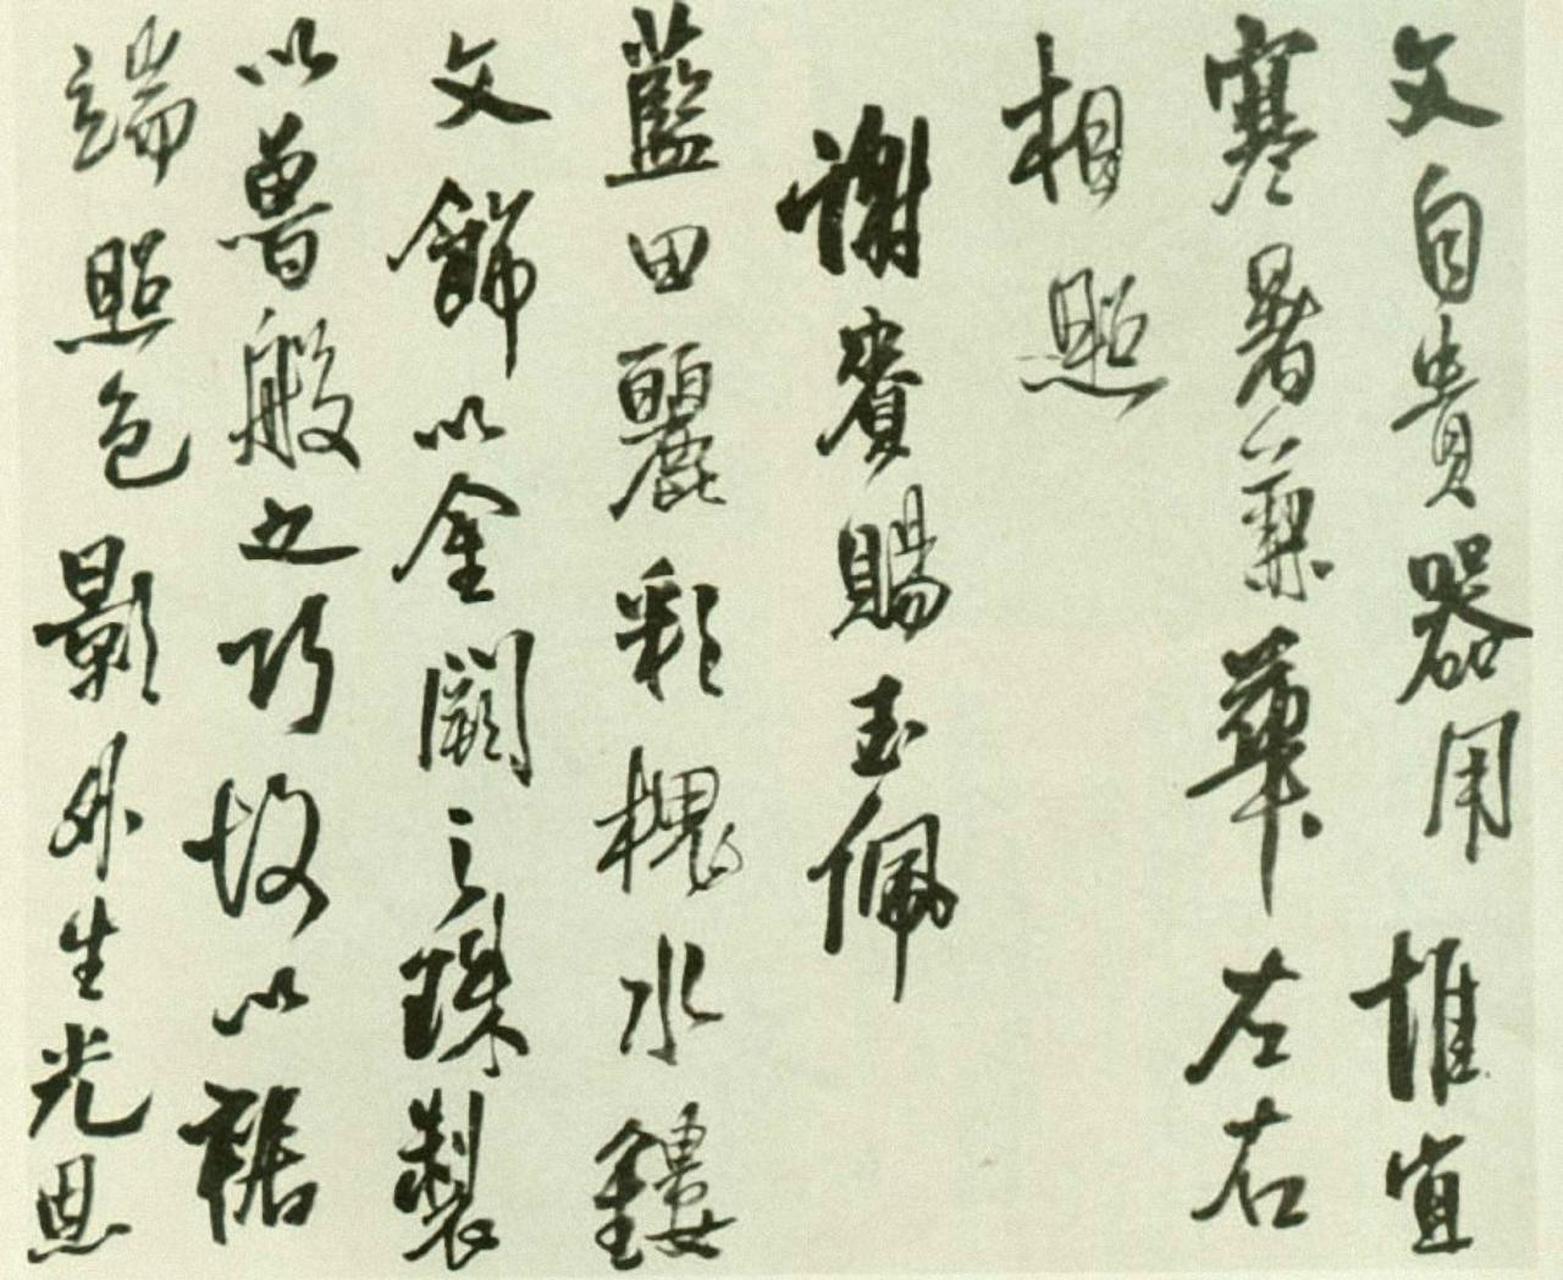 文自貴器用惟宜
寒暑兼華左右
相照
謝賚賜玉佩
藍田麗彩槐水鏤
文飾以金闕之珠製
以魯般之巧故以裾
端照色影外生光恩